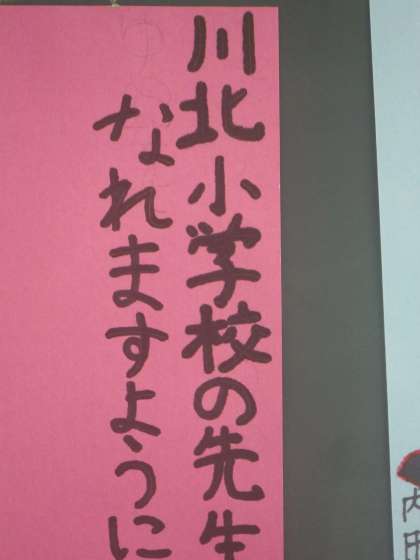 川北小学校の先生
なれますように
内田